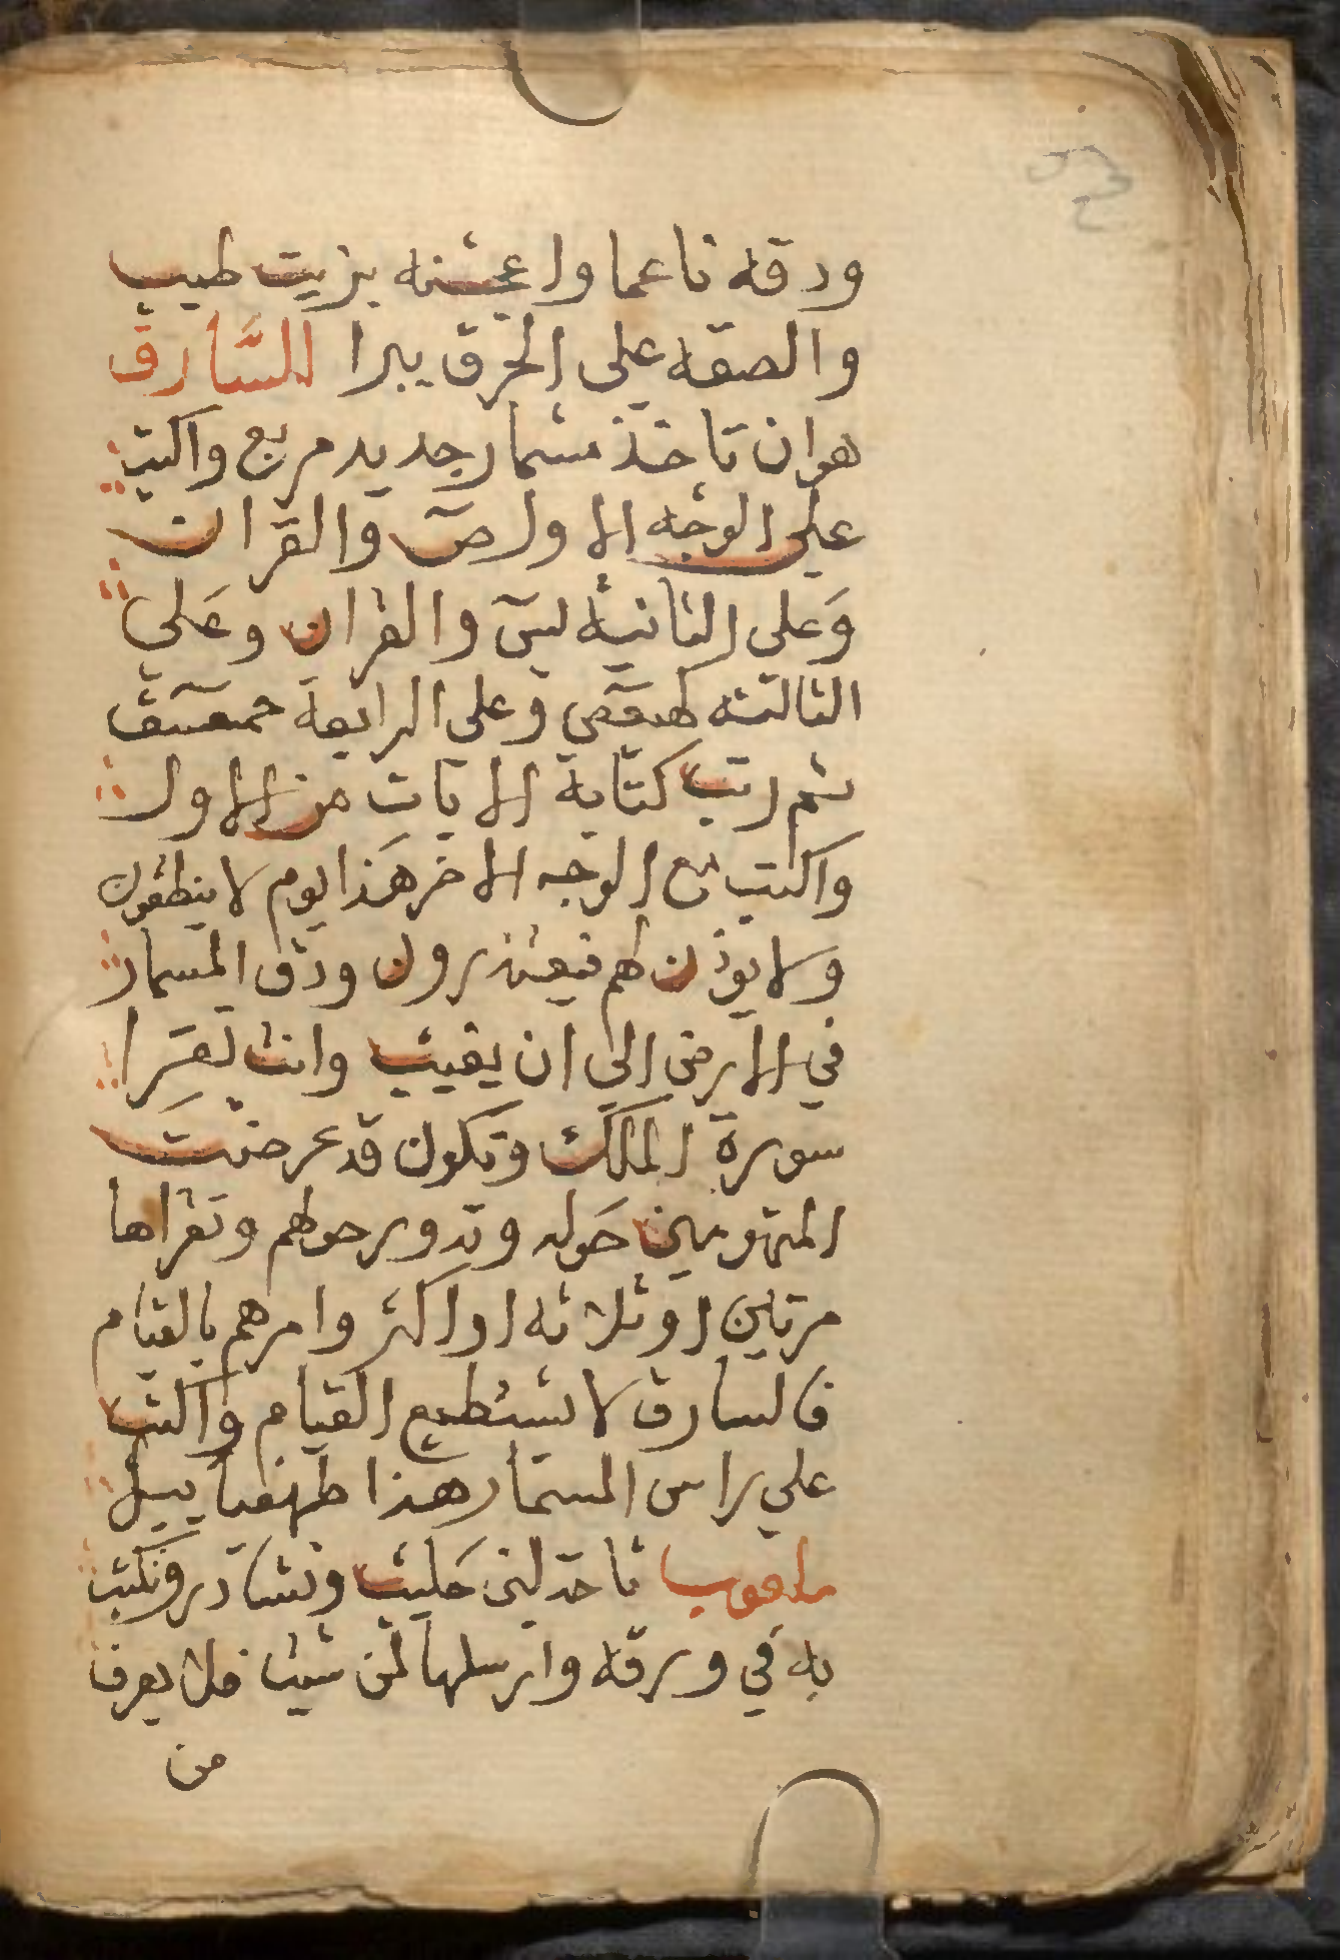 ودقه ناعما واعجنه بزيت طيب
والصقه على الحرق يبرا للسَّارق
هوان تاخذ مسمار جديد مربع واكتب
على الوجه الاول صٓ والقران
وَعلى الثانية يسٓ والقران وعَلى
الثالثه كهيعٓصٓ وعلى الرابعة حمعٓسٓقٓ
ثم رتب كتابة الايات من الاول
واكتب مع الوجه الاخر هَذا يوم لا ينطقون
ولا يوذن لهم فيعتذرون ودق المسمار
في الارض الى ان يغيب وانت تقرا
سورة الملك وتكون قد عرضت
المتهومين حَوله وتدور حولهم وتقراها
مرتين او ثلاثه او اكثر وامرهم بالقيام
فالسارق لا يستطيع القيام واكتب
على راس المسمار هذا طهفياييل
ملعوب تاخد لبن حَليب ونشادر وتكتب
به في ورقه وارسلها لمن شيت فلا يعرف
من